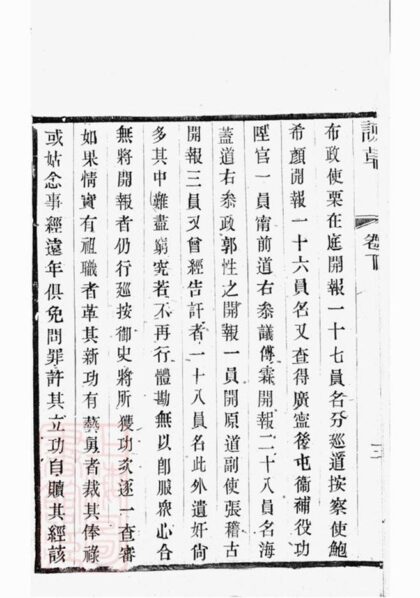 諫草 卷下 三
布政使栗在庭開報一十七員名分廵道按察使鮑
希顏開報一十六員名又查得廣寧後屯衞補役功
陞官一員甯前道右叅議傅霖開報二十八員名海
蓋道右叅政郭性之開報一員開原道副使張稽古
開報三員又曾經告訐者一十八員名此外遺奸尙
多其中難盡窮究若不再行體勘無以卽服衆心合
無將開報者仍行廵按御史將所獲功次逐一查審
如果情實有祖職者革其新功有藝勇者裁其俸祿
或姑念事經遠年俱免問罪許其立功自贖其經該